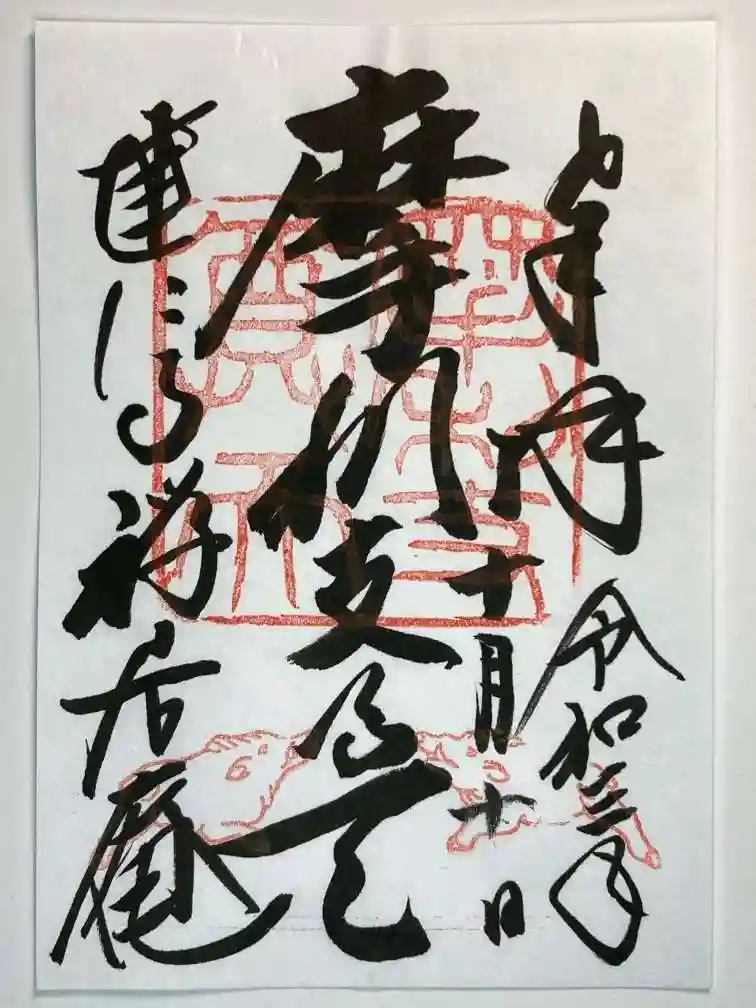 奉拝 令和三年
十月十日
摩利支尊天
建仁寺 禅居庵